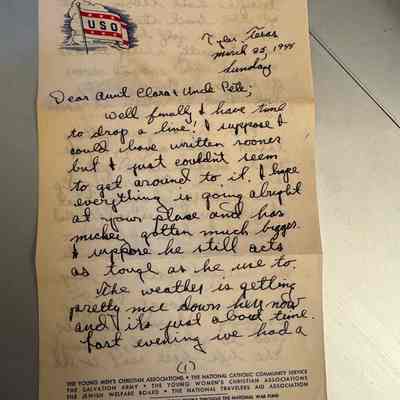 USO
Tyler Texas
March 25, 1944
Sunday
Dear Aunt Clara & Uncle Pete;
Well finally I have time
to drop a line! I suppose I
could have written sooner
but I just couldn't seem
to get around to it. I hope
everything is going alright
at your place and has
mickey gotten much bigger.
I suppose he still acts
as tough as he use to.
The weather is getting
pretty nice down here now
and it's just about time.
Last evening we had a
(1)
THE YOUNG MEN'S CHRISTIAN ASSOCIATIONS • THE NATIONAL CATHOLIC COMMUNITY SERVICE
THE SALVATION ARMY • THE YOUNG WOMEN'S CHRISTIAN ASSOCIATIONS
THE JEWISH WELFARE BOARD • THE NATIONAL TRAVELERS AID ASSOCIATION
THROUGH THE NATIONAL WAR FUND